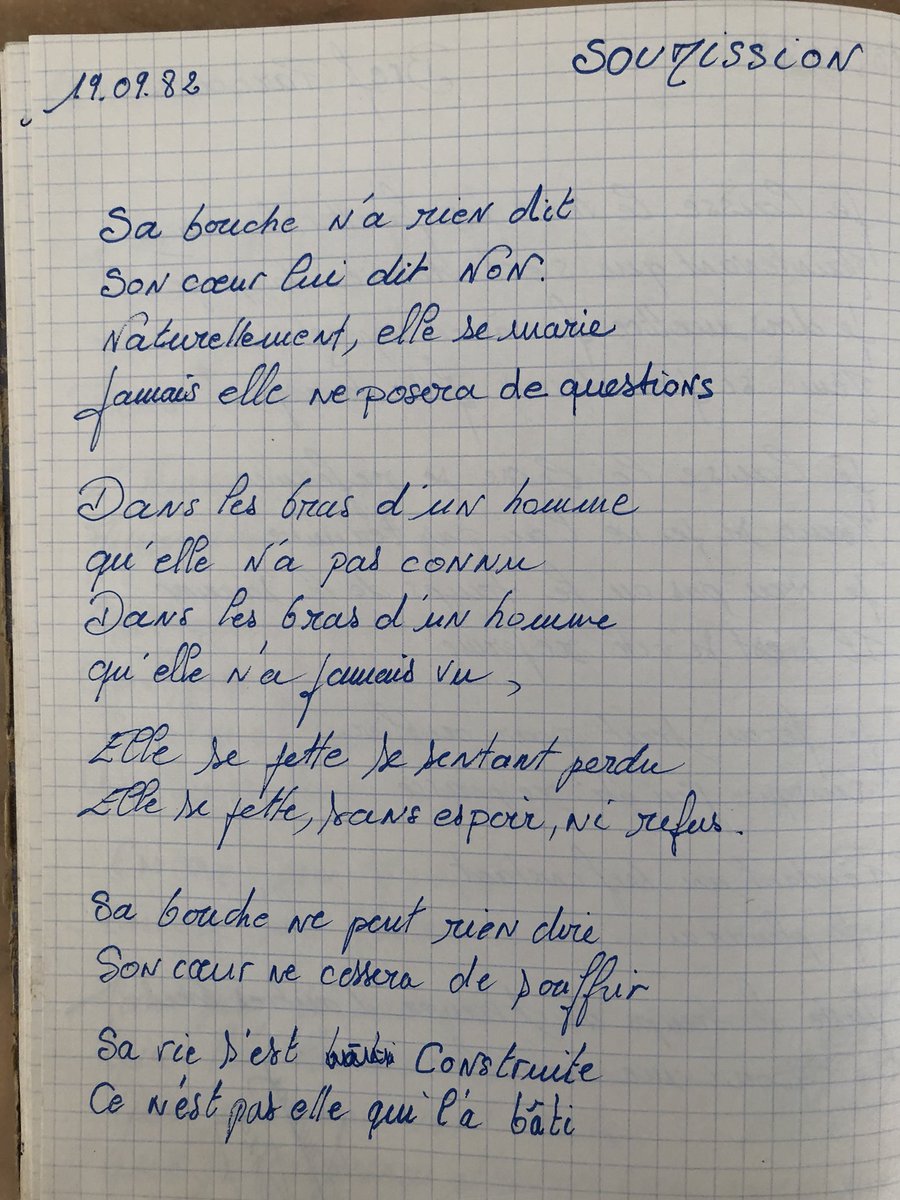 19.09.82
SOUMISSION
Sa bouche n'a rien dit
Son cœur lui dit NON.
Naturellement, elle se marie
Jamais elle ne posera de questions
Dans les bras d'un homme
qu'elle n'a pas connu
Dans les bras d'un homme
qu'elle n'a jamais vu,
Elle se jette se sentant perdu
Elle se jette, sans espoir, ni refus.
Sa bouche ne peut rien dire
Son cœur ne cessera de souffrir
Sa vie s'est Construite
Ce n'est pas elle qui l'a bâti